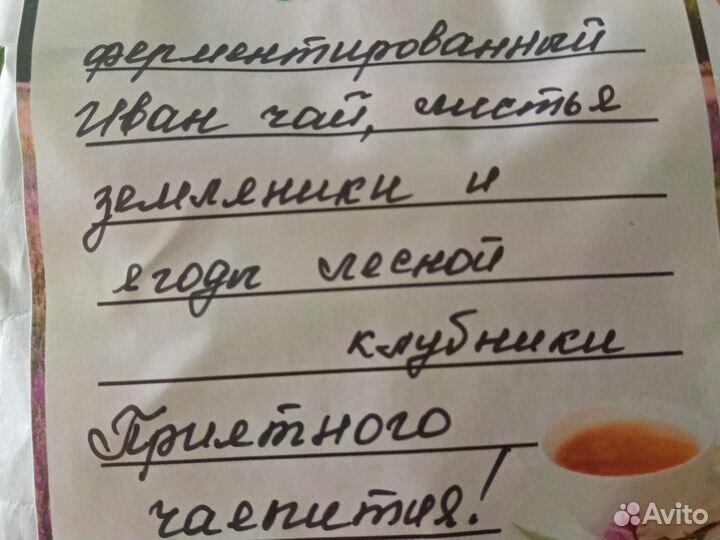 ферментированный
Иван чай, листья
земляники и
ягоды лесной
клубники
Приятного
чаепития!
Avito